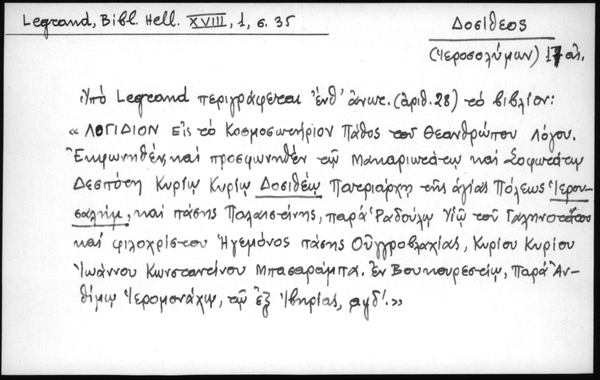 Legrand, Bibl. Hell. XVIII, 1, σ. 35
Δοσίθεος
(Ἱεροσολύμων) 17 αἰ.
Ὑπὸ Legrand περιγράφεται ἔνθ' ἀνωτ. (ἀριθ. 28) τὸ βιβλίον:
« ΛΟΓΙΔΙΟΝ Εἰς τὸ Κοσμοσωτήριον Πάθος τοῦ Θεανθρώπου Λόγου.
Ἐκφωνηθὲν καὶ προσφωνηθὲν τῷ Μακαριωτάτῳ καὶ Σοφωτάτῳ
Δεσπότῃ Κυρίῳ Κυρίῳ Δοσιθέῳ Πατριάρχῃ τῆς ἁγίας Πόλεως Ἱερου-
σαλὴμ, καὶ πάσης Παλαιστίνης, παρὰ Ῥαδούλῳ Υἱῷ τοῦ Γαληνοτάτου
καὶ φιλοχρίστου Ἡγεμόνος πάσης Οὐγγροβλαχίας, Κυρίου Κυρίου
Ἰωάννου Κωνσταντίνου Μπασαράμπα. Ἐν Βουκουρεστίῳ, παρὰ Ἀν-
θίμῳ Ἱερομονάχῳ, τῷ ἐξ Ἰβηρίας, αψδ'. »